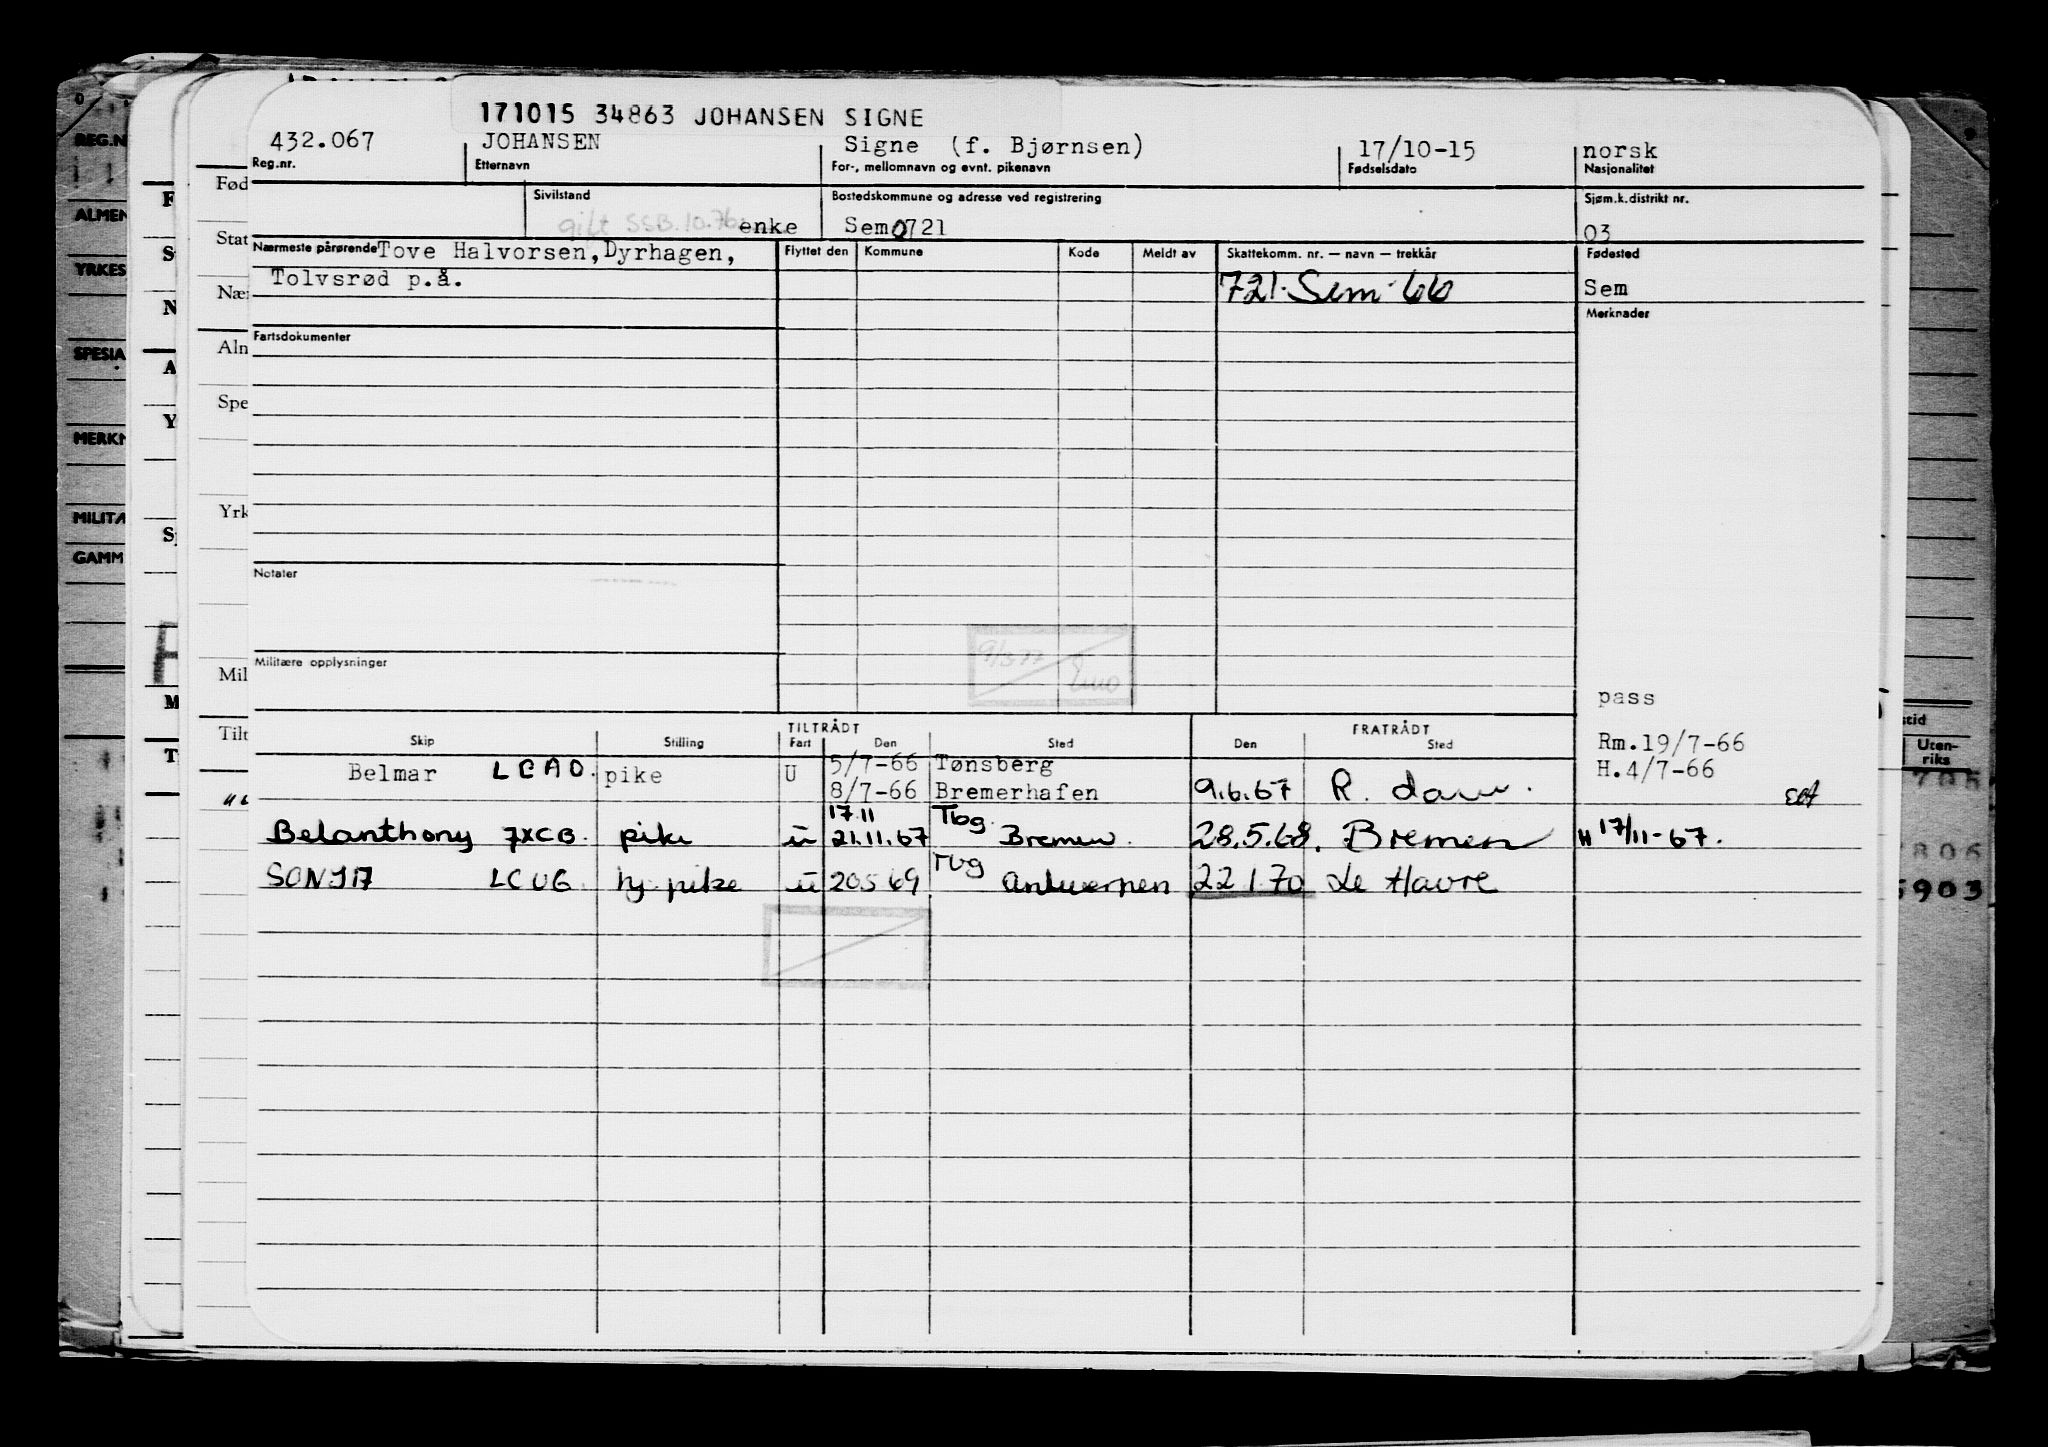 171015 34863 JOHANSEN SIGNE
432.067 JOHANSEN Signe (f. Bjørnsen) 17/10-15 norsk
Reg.nr. Etternavn For-, mellomnavn og evnt. pikenavn Fødselsdato Nasjonalitet
Sivilstand Bostedskommune og adresse ved registrering Sjøm.k.distrikt nr.
gift SSB.10.76 enke Sem 0721 03
Nærmeste pårørende Tove Halvorsen, Dyrhagen, Flyttet den Kommune Kode Meldt av Skattekomm. nr. — navn — trekkår Fødested
Tolvsrød p.å. 721. Sem 66 Sem
Merknader
Fartsdokumenter
Notater
9/3 77
Militære opplysninger
pass
TILTRÅDT FRATRÅDT
Skip Stilling Fart Den Sted Den Sted
Rm.19/7-66
H.4/7-66
Belmar LCAO. pike U 5/7-66 Tønsberg
8/7-66 Bremerhafen 9.6.67 R. dam.
17.11 Tbg.
Belanthony 7XCB. pike u 21.11.67 Bremen. 28.5.68. Bremen H 17/11-67.
Tbg
SONJA LCUG. hj. pike u 20.5 69 Antwerpen 22 1.70 Le Havre
REG.N
ALMEN
YRKES
SPESIA
MERKN
MILITÆ
GAMM
F
S
N
A
Y
M
T
Fød
Stat
Nær
Aln
Spe
Yrk
Mil
Tilt
Uten-
riks
5903